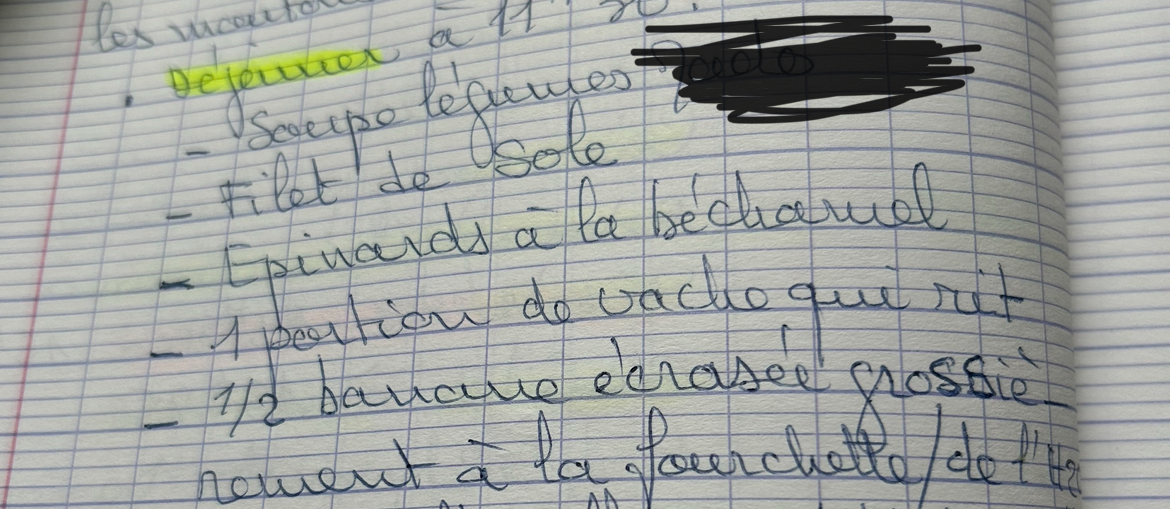 les
. Déjeuner à 11
- Soupe légumes
- Filet de Sole
- Epinards à la béchamel
- 1 portion de vache qui rit
- 1/2 banane écrasée grossiè_
rement à la fourchette/de l'